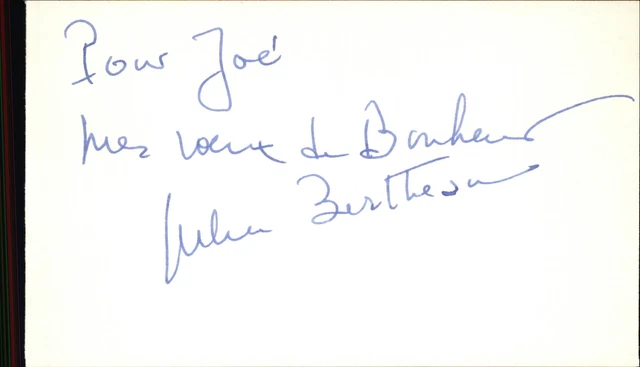 Pour Joé
mes vœux de Bonheur
Julien Bertheau